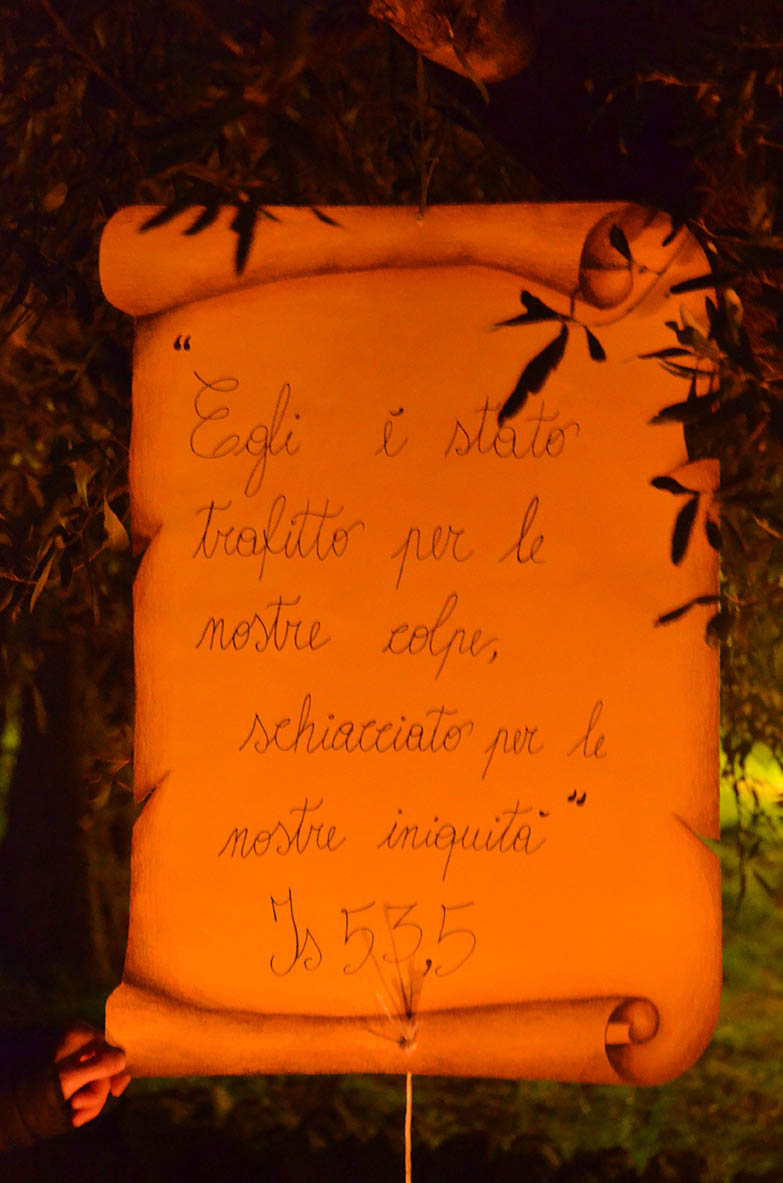 “
Egli è stato
trafitto per le
nostre colpe,
schiacciato per le
nostre iniquità”
Is 53,5